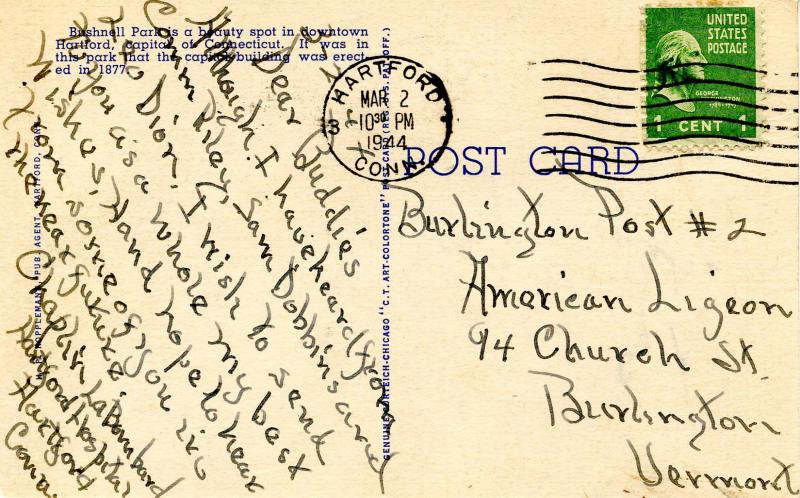 Bushnell Park is a beauty spot in downtown
Hartford, capital of Connecticut. It was in
this park that the capitol building was erect-
ed in 1877.
Dear Buddies
Although I have heard from
Comm. Riley, Sam Dobbins and
Leo Dior! I wish to send
to you as a whole my best
wishes, and hope to hear
from some of you in
the near future.
Chaplin Labombard
Hartford Hospital
Hartford
Conn.
HOPPLEMAN, PUB. AGENT, HARTFORD, CONN.
GENUINE CURTEICH-CHICAGO "C.T. ART-COLORTONE" POST CARD (REG. U.S. PAT. OFF.)
HARTFORD
MAR 2
10 30 PM
1944
CONN.
3
UNITED
STATES
POSTAGE
GEORGE
WASHINGTON
1789-1797
1 CENT 1
POST CARD
Burlington Post # 2
American Ligeon
94 Church St.
Burlington
Vermont